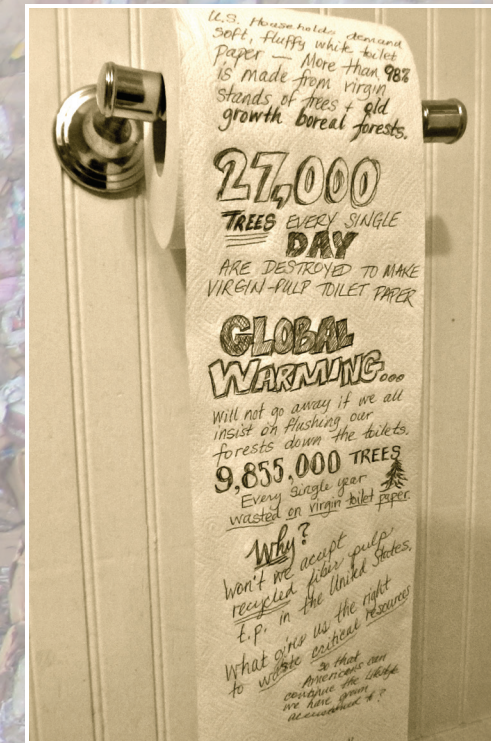 U.S. Households demand
soft, fluffy white toilet
paper — More than 98%
is made from virgin
stands of trees + old
growth boreal forests.
27,000
TREES EVERY SINGLE
DAY
ARE DESTROYED TO MAKE
VIRGIN-PULP TOILET PAPER
GLOBAL
WARMING...
Will not go away if we all
insist on flushing our
forests down the toilets.
9,855,000 TREES
Every single year
wasted on virgin toilet paper.
Why?
Won't we accept
recycled fiber pulp
t.p. in the United States.
What gives us the right
to waste critical resources
so that
Americans can
continue the lifestyle
we have grown
accustomed to?